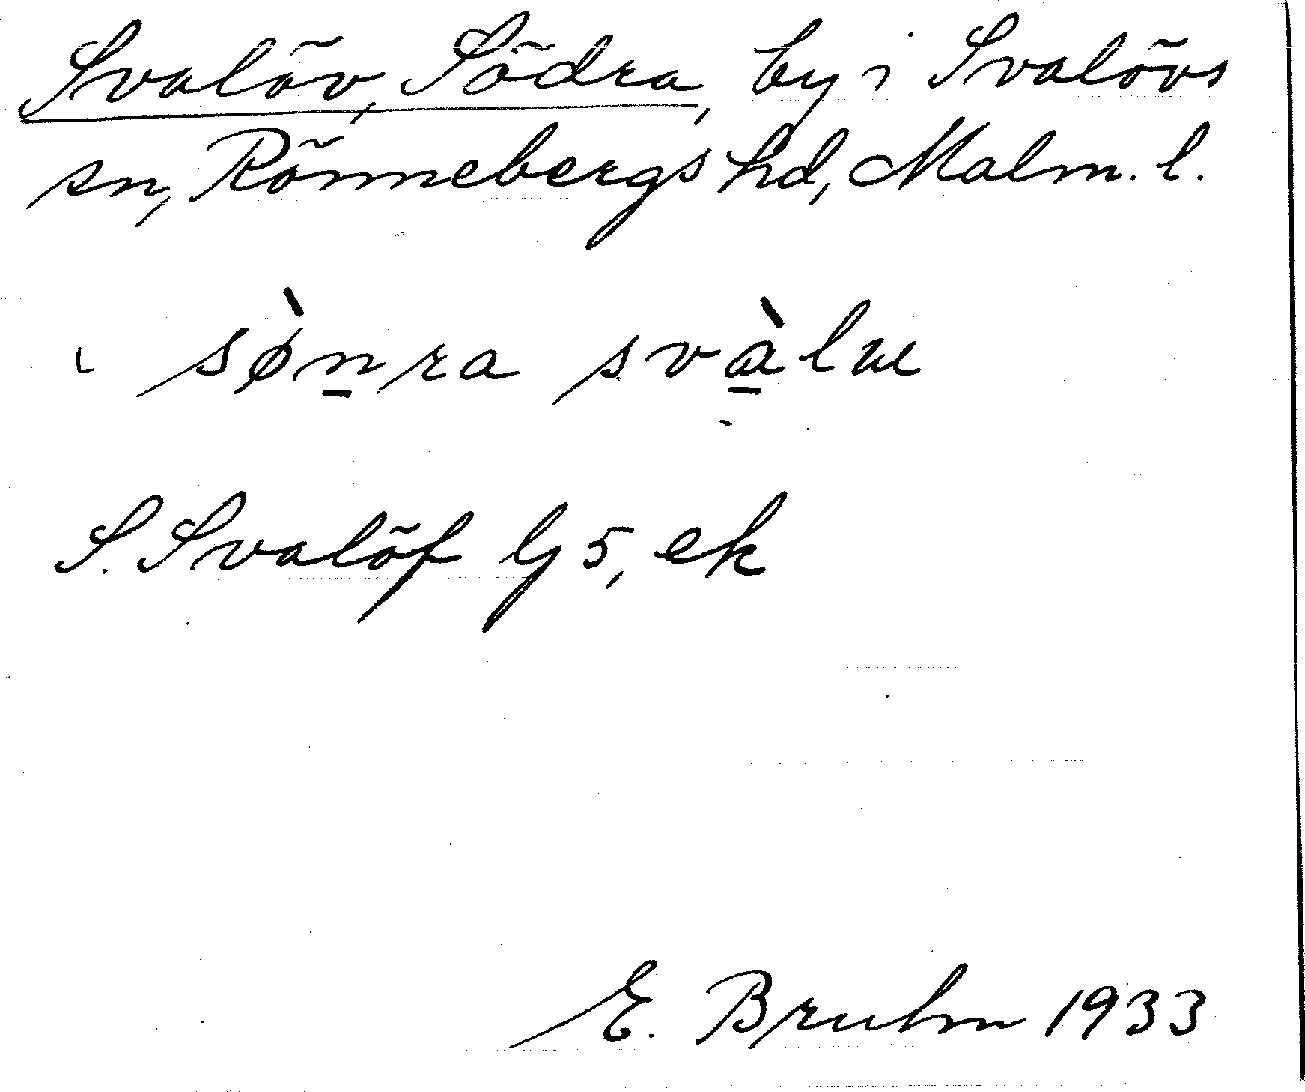 Svalöv, Södra, by i Svalövs
sn, Rönnebergs hd, Malm. l.
sø̀n̲ra svà̲lɯ
S. Svalöf by 5, ek
E. Bruhn 1933